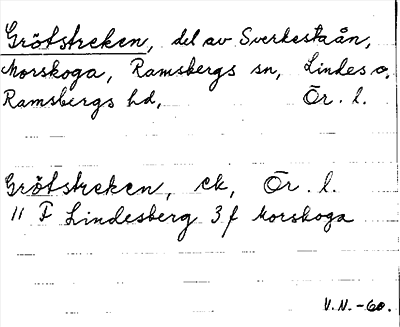 Grötstreken, del av Sverkestaån,
Morskoga, Ramsbergs sn, Lindes o.
Ramsbergs hd, Ör. l.
Grötstreken, ek, Ör. l.
11 F Lindesberg 3 f Morskoga
V.N.-60.